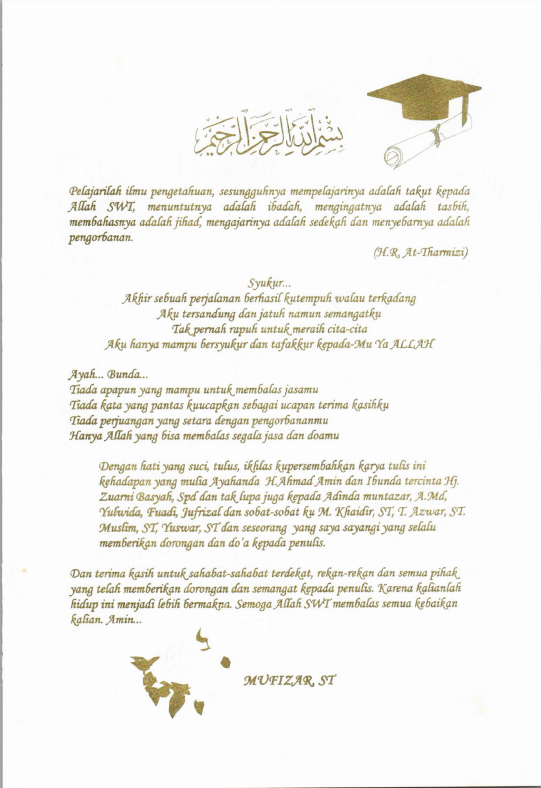 بسم الله الرحمن الرحيم
Pelajarilah ilmu pengetahuan, sesungguhnya mempelajarinya adalah takut kepada
Allah SWT, menuntutnya adalah ibadah, mengingatnya adalah tasbih,
membahasnya adalah jihad, mengajarinya adalah sedekah dan menyebarnya adalah
pengorbanan.
(H.R, At-Tharmizi)
Syukur...
Akhir sebuah perjalanan berhasil kutempuh walau terkadang
Aku tersandung dan jatuh namun semangatku
Tak pernah rapuh untuk meraih cita-cita
Aku hanya mampu bersyukur dan tafakkur kepada-Mu Ya ALLAH
Ayah... Bunda...
Tiada apapun yang mampu untuk membalas jasamu
Tiada kata yang pantas kuucapkan sebagai ucapan terima kasihku
Tiada perjuangan yang setara dengan pengorbananmu
Hanya Allah yang bisa membalas segala jasa dan doamu
Dengan hati yang suci, tulus, ikhlas kupersembahkan karya tulis ini
kehadapan yang mulia Ayahanda H.Ahmad Amin dan Ibunda tercinta Hj.
Zuarni Basyah, Spd dan tak lupa juga kepada Adinda muntazar, A.Md,
Yulwida, Fuadi, Jufrizal dan sobat-sobat ku M. Khaidir, ST, T. Azwar, ST.
Muslim, ST, Yuswar, ST dan seseorang yang saya sayangi yang selalu
memberikan dorongan dan do'a kepada penulis.
Dan terima kasih untuk sahabat-sahabat terdekat, rekan-rekan dan semua pihak
yang telah memberikan dorongan dan semangat kepada penulis. Karena kalianlah
hidup ini menjadi lebih bermakna. Semoga Allah SWT membalas semua kebaikan
kalian. Amin...
MUFIZAR, ST